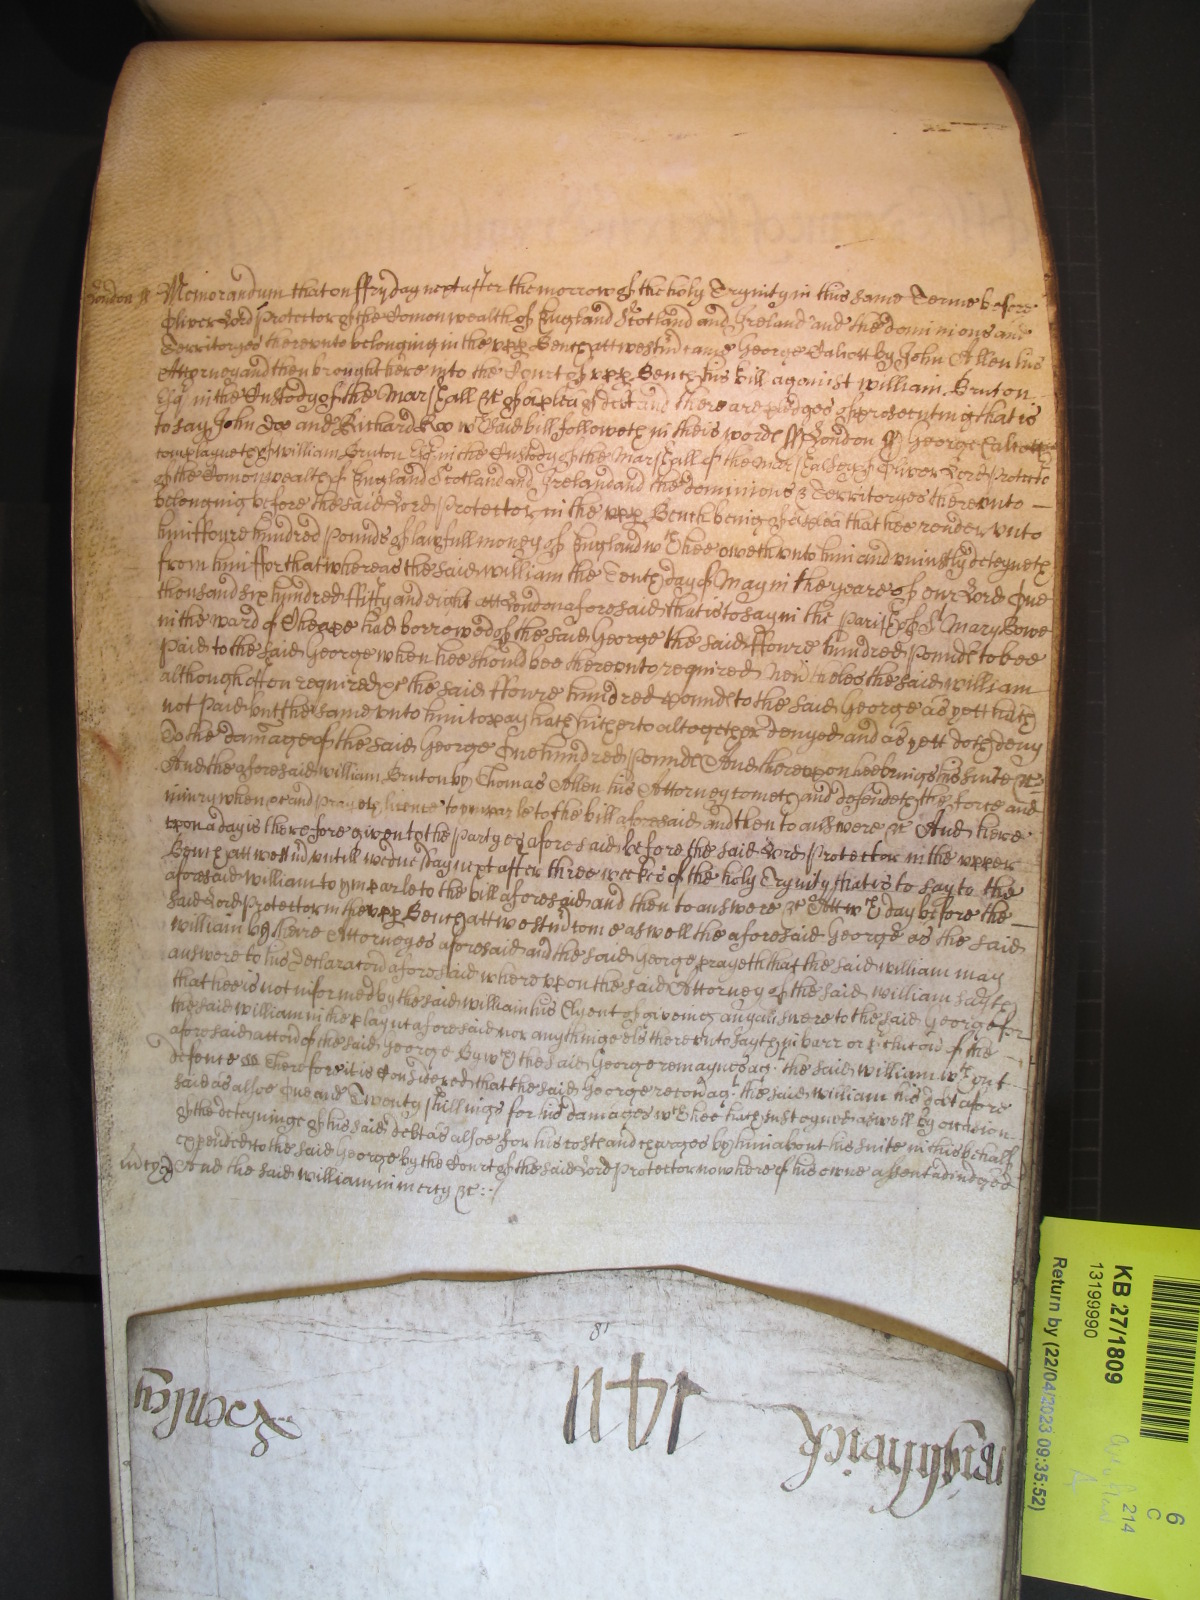 London ss Memorandum that on ffryday next after the morrow of the holy Trynity in this same Terme before
Oliver Lord Protector of the Comonwealth of England Scotland and Ireland and the dominions and
Territoryes thereunto belonging in the upp Bench att westmd came George Calcott by John Allen his
Attorney and then brought here into the Court of upp Bench his bill against William Bruton
Esqr in the Custody of the Marshall &c of a plea of debt and there are pledges of prosecuting that is
to say John Doo and Richard Roo wch said bill followeth in theis words ss London ss George Calcott
complayneth of William Bruton Esqr in the Custody of the Marshall of the Marshalsey of Oliver Lord Protector
of the Comonwealth of England Scotland and Ireland and the dominions & Territoryes thereunto
belonging before the said Lord Protector in the upp Bench being of a plea that hee render unto
him ffoure hundred Pounds of lawfull money of England wch hee oweth unto him and uniustly deteyneth
from him ffor that whereas the said William the Tenth day of May in the yeare of our Lord One
thousand six hundred ffifty and eight att London aforesaid that is to say in the Parish of St Mary Bowe
in the ward of Cheape had borrowed of the said George the said ffoure hundred Pounds to bee
Paid to the said George when hee should bee thereunto required Nevrtheles the said William
although often required &c the said ffoure hundred pounds to the said George as yett hath
not Paid but the same unto him to pay hath hitherto altogether denyed and as yett doth deny
To the damage of the said George One hundred Pounds And thereupon hee brings his suite &c
And the aforesaid William Bruton by Thomas Allen his Attorney cometh and defendeth the force and
iniury when &c and prayeth licence to ymparle to the bill aforesaid and then to answere &c And here
upon a day is therefore given to the partyes aforesaid before the said Lord Protector in the upper
Bench att westmd untill wednesday next after three weekes of the holy Trynity that is to say to the
aforesaid William to ymparle to the bill aforesaid and then to answere &c Att wch day before the
said Lord Protector in the upp Bench att westmd come aswell the aforesaid George as the said
William by theire Attorneyes aforesaid and the said George prayeth that the said William may
answere to his declaracon aforesaid whereupon the said Attorney of the said William sayth
that hee is not informed by the said William his Clyent of giveing any answere to the said George for
the said William in the playnt aforesaid nor any thing els thereunto sayth in barr or p'clucon of the
aforesaid accon of the said George By wch the said George remaynes ag. the said William wthout
defence Therefore it is Considered that the said George recov ag. the said William his debt afore
said as alsoe One and Twenty shillings for his damages wch hee hath susteyned aswell by occasion
of the deteyninge of his said debt as alsoe for his costs and charges by him about his suite in this behalf
expended to the said George by the Court of the said Lord Protector now here of his owne assent adiudged
mcy And the said William in mercy &c
81
Wightwick 1411 Henley
KB 27/1809
13199990
Return by (22/04/2023 09:35:52)
6
C
214